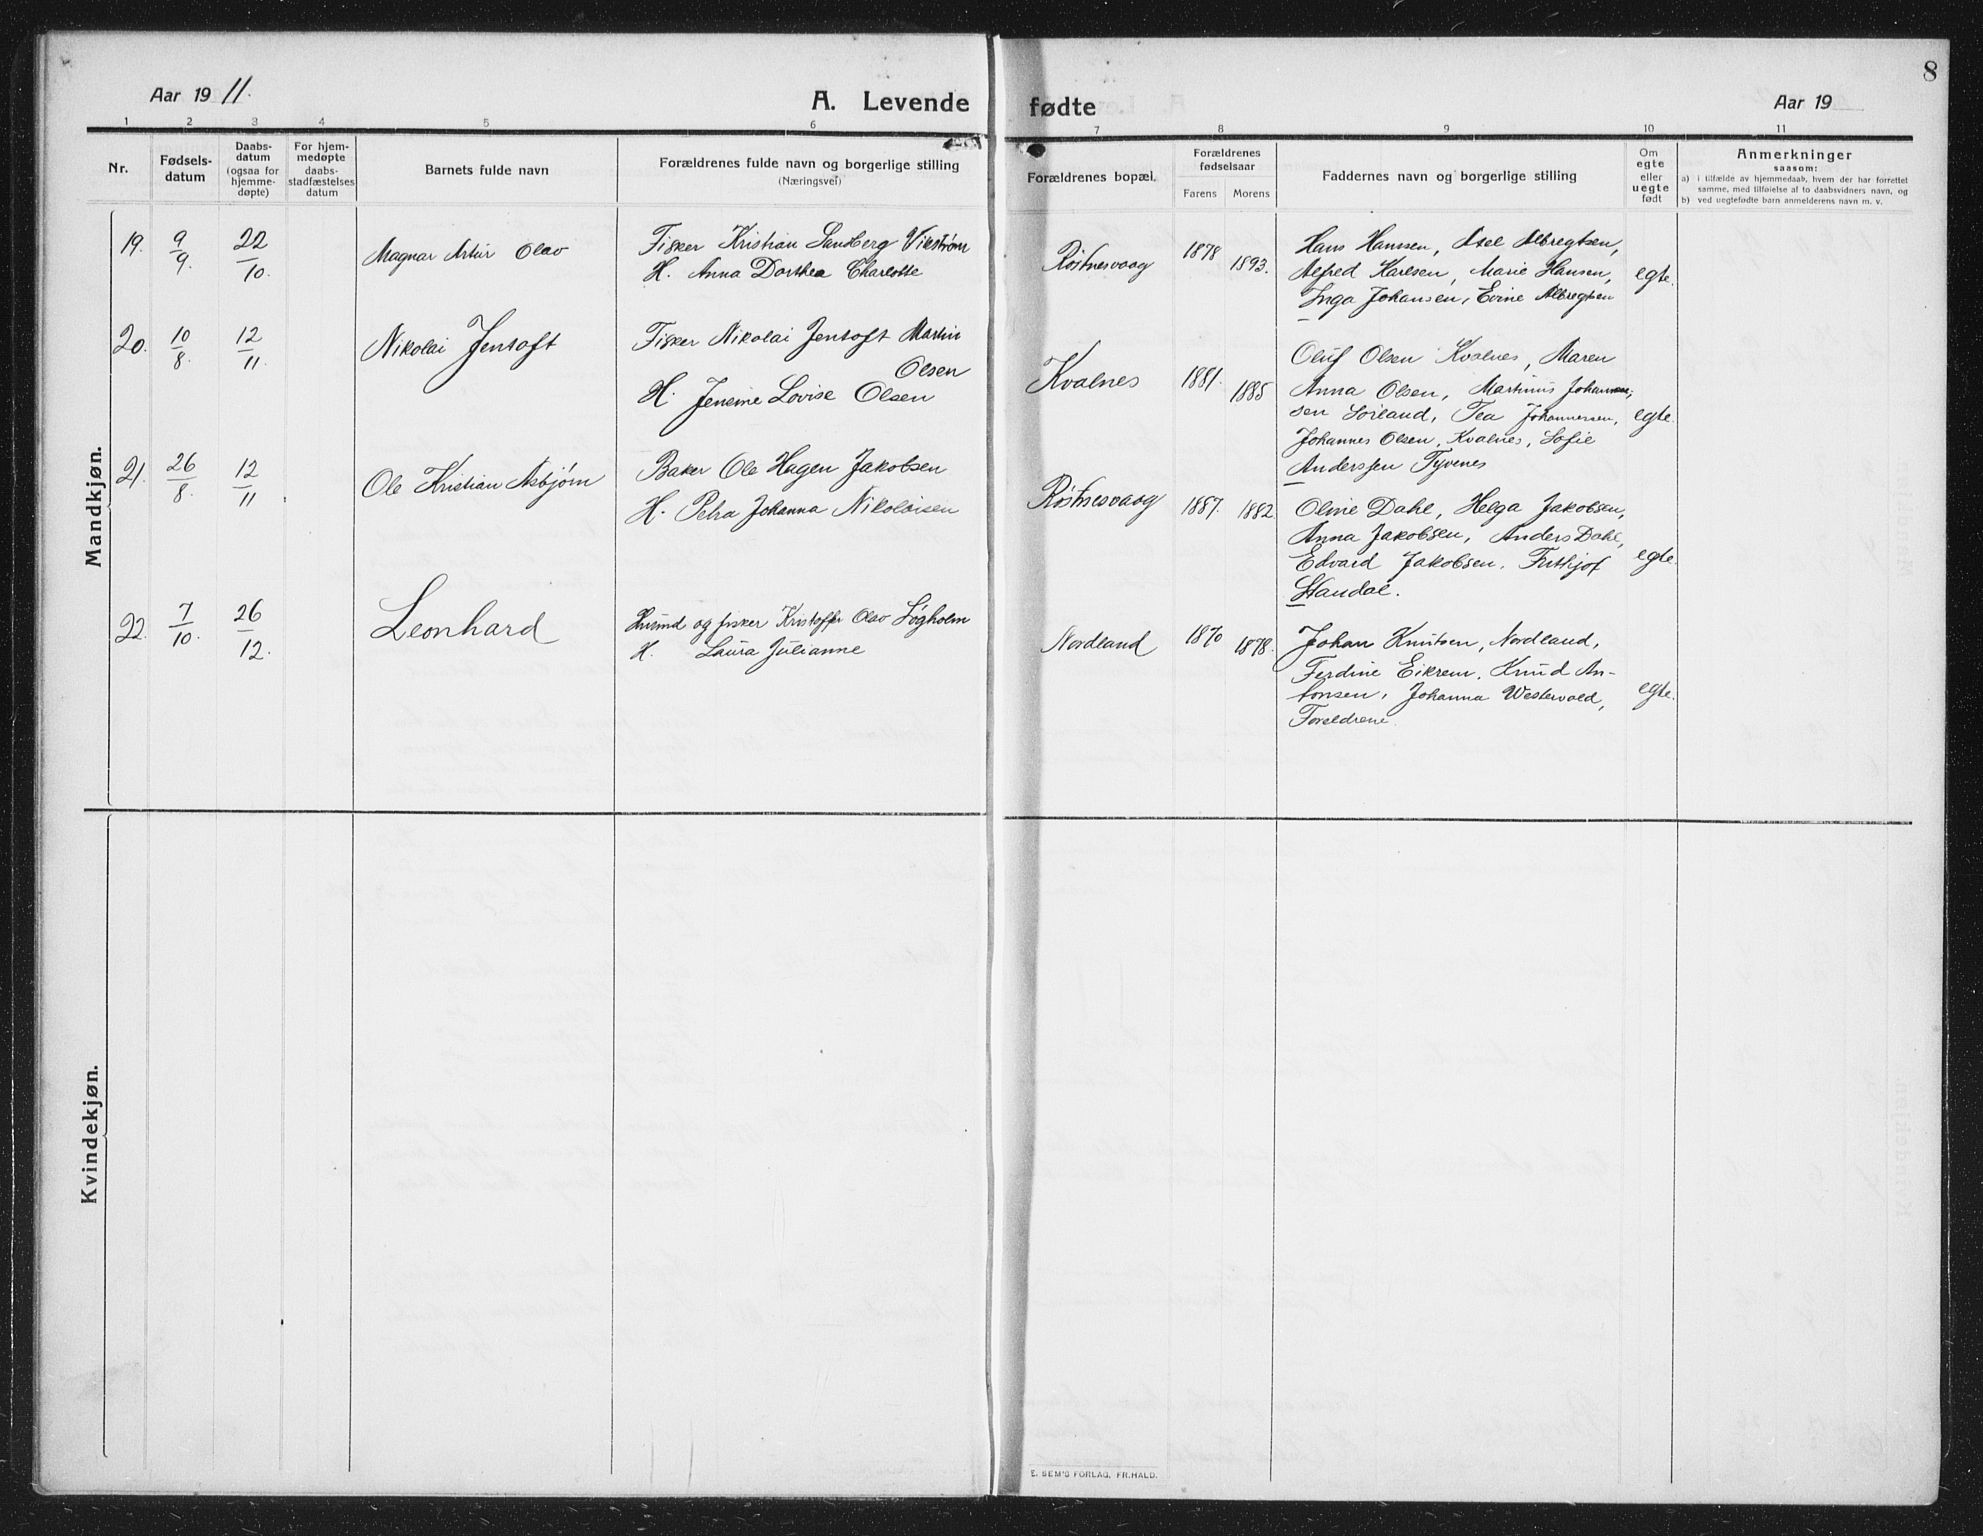 8
Aar 1911.
A. Levende
fødte
Aar 19
1 2 3 4 5 6
7 8 9 10 11
Nr.
Fødsels-
datum
Daabs-
datum
(ogsaa for
hjemme-
døpte)
For hjem-
medøpte
daabs-
stadfæstelses
datum
Barnets fulde navn
Forældrenes fulde navn og borgerlige stilling
(Næringsvei)
Forældrenes bopæl.
Forældrenes
fødselsaar
Farens Morens
Faddernes navn og borgerlige stilling
Om
egte
eller
uegte
født
Anmerkninger
saasom:
a) i tilfælde av hjemmedaab, hvem der har forrettet
samme, med tilføielse af to daabsvidners navn, og
b) ved uegtefødte barn anmelderens navn m. v.
Mandkjøn.
19. 9/9. 22/10. Magnar Artur Olav
Fisker Kristian Sandberg Vikstrøm
H. Anna Dorthea Charlotte.
Röstnesvaag 1878 1893.
Hans Hanssen, Axel Albregtsen,
Alfred Karlsen, Marie Hansen,
Inga Johansen, Evine Albregtsen
egte.
20. 10/8. 12/11. Nikolai Jentoft
Fisker Nikolai Jentoft Martin
Olsen
H. Jenine Lovise Olsen
Kvalnes 1881. 1885
Oluf Olsen Kvalnes, Maren
Anna Olsen, Martinus Johannes-
sen Sörland, Tea Johannessen,
Johannes Olsen, Kvalnes, Sofie
Anderssen Tyvenes
egte.
21. 26/8. 12/11 Ole Kristian Asbjørn
Baker Ole Hagen Jakobsen
H. Petra Johanna Nikolaisen
Röstnesvaag 1887. 1882
Oline Dahl, Helga Jakobsen,
Anna Jakobsen, Anders Dahl,
Edvard Jakobsen, Frithjof
Standal.
egte.
22. 7/10. 26/12. Leonhard
Husmd og fisker Kristoffer Olav Løgholm
H. Laura Julianne
Nordland 1870 1878.
Johan Knutsen, Nordland,
Ferdine Eikrem, Knud An-
tonsen, Johanna Westervold,
Forældrene.
egte.
Kvindekjøn.
E. SEM'S FORLAG, FR.HALD.